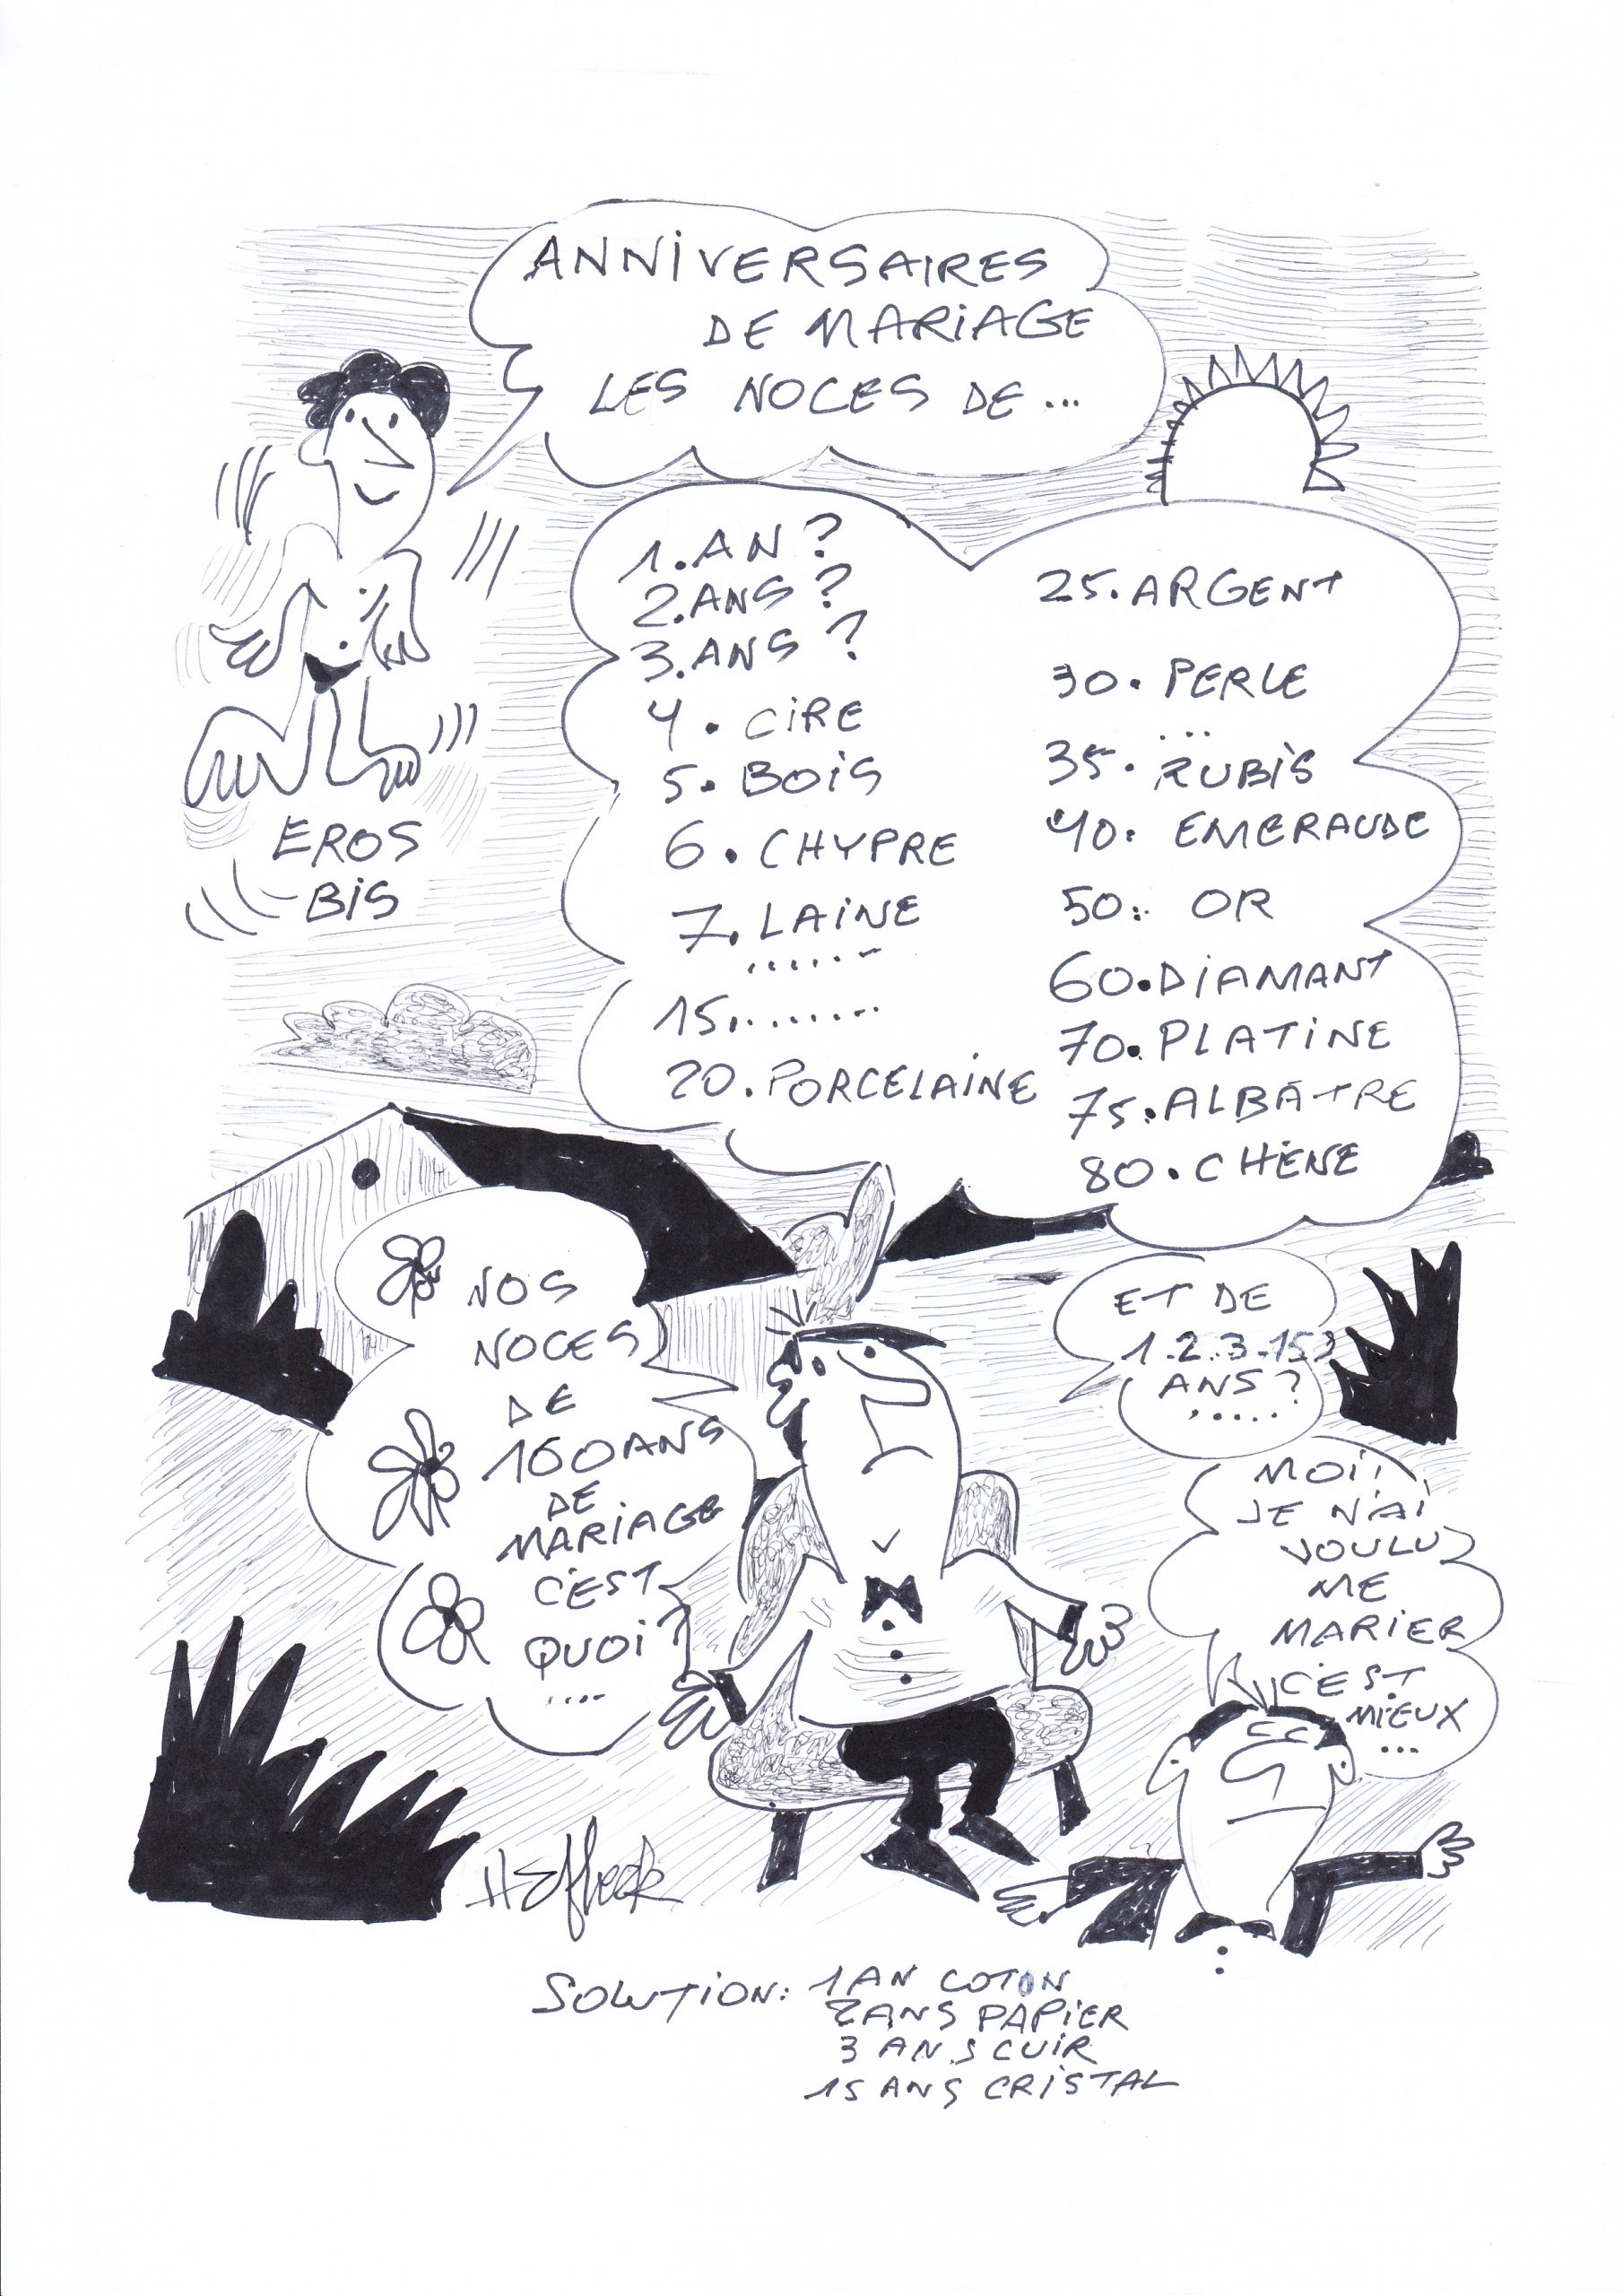 ANNIVERSAIRES
DE MARIAGE
LES NOCES DE ...
1. AN ?
2. ANS ?
3. ANS ?
4. CIRE
5. BOIS
6. CHYPRE
7. LAINE
......
15........
20. PORCELAINE
25. ARGENT
30. PERLE
...
35. RUBIS
40. EMERAUDE
50. OR
60. DIAMANT
70. PLATINE
75. ALBÂTRE
80. CHÊNE
EROS
BIS
NOS
NOCES
DE
100 ANS
DE
MARIAGE
C'EST
QUOI?
....
ET DE
1.2.3.15?
ANS?
......
MOI!
JE N'AI
VOULU
ME
MARIER
C'EST
MIEUX
...
SOLUTION: 1 AN COTON
2 ANS PAPIER
3 ANS CUIR
15 ANS CRISTAL